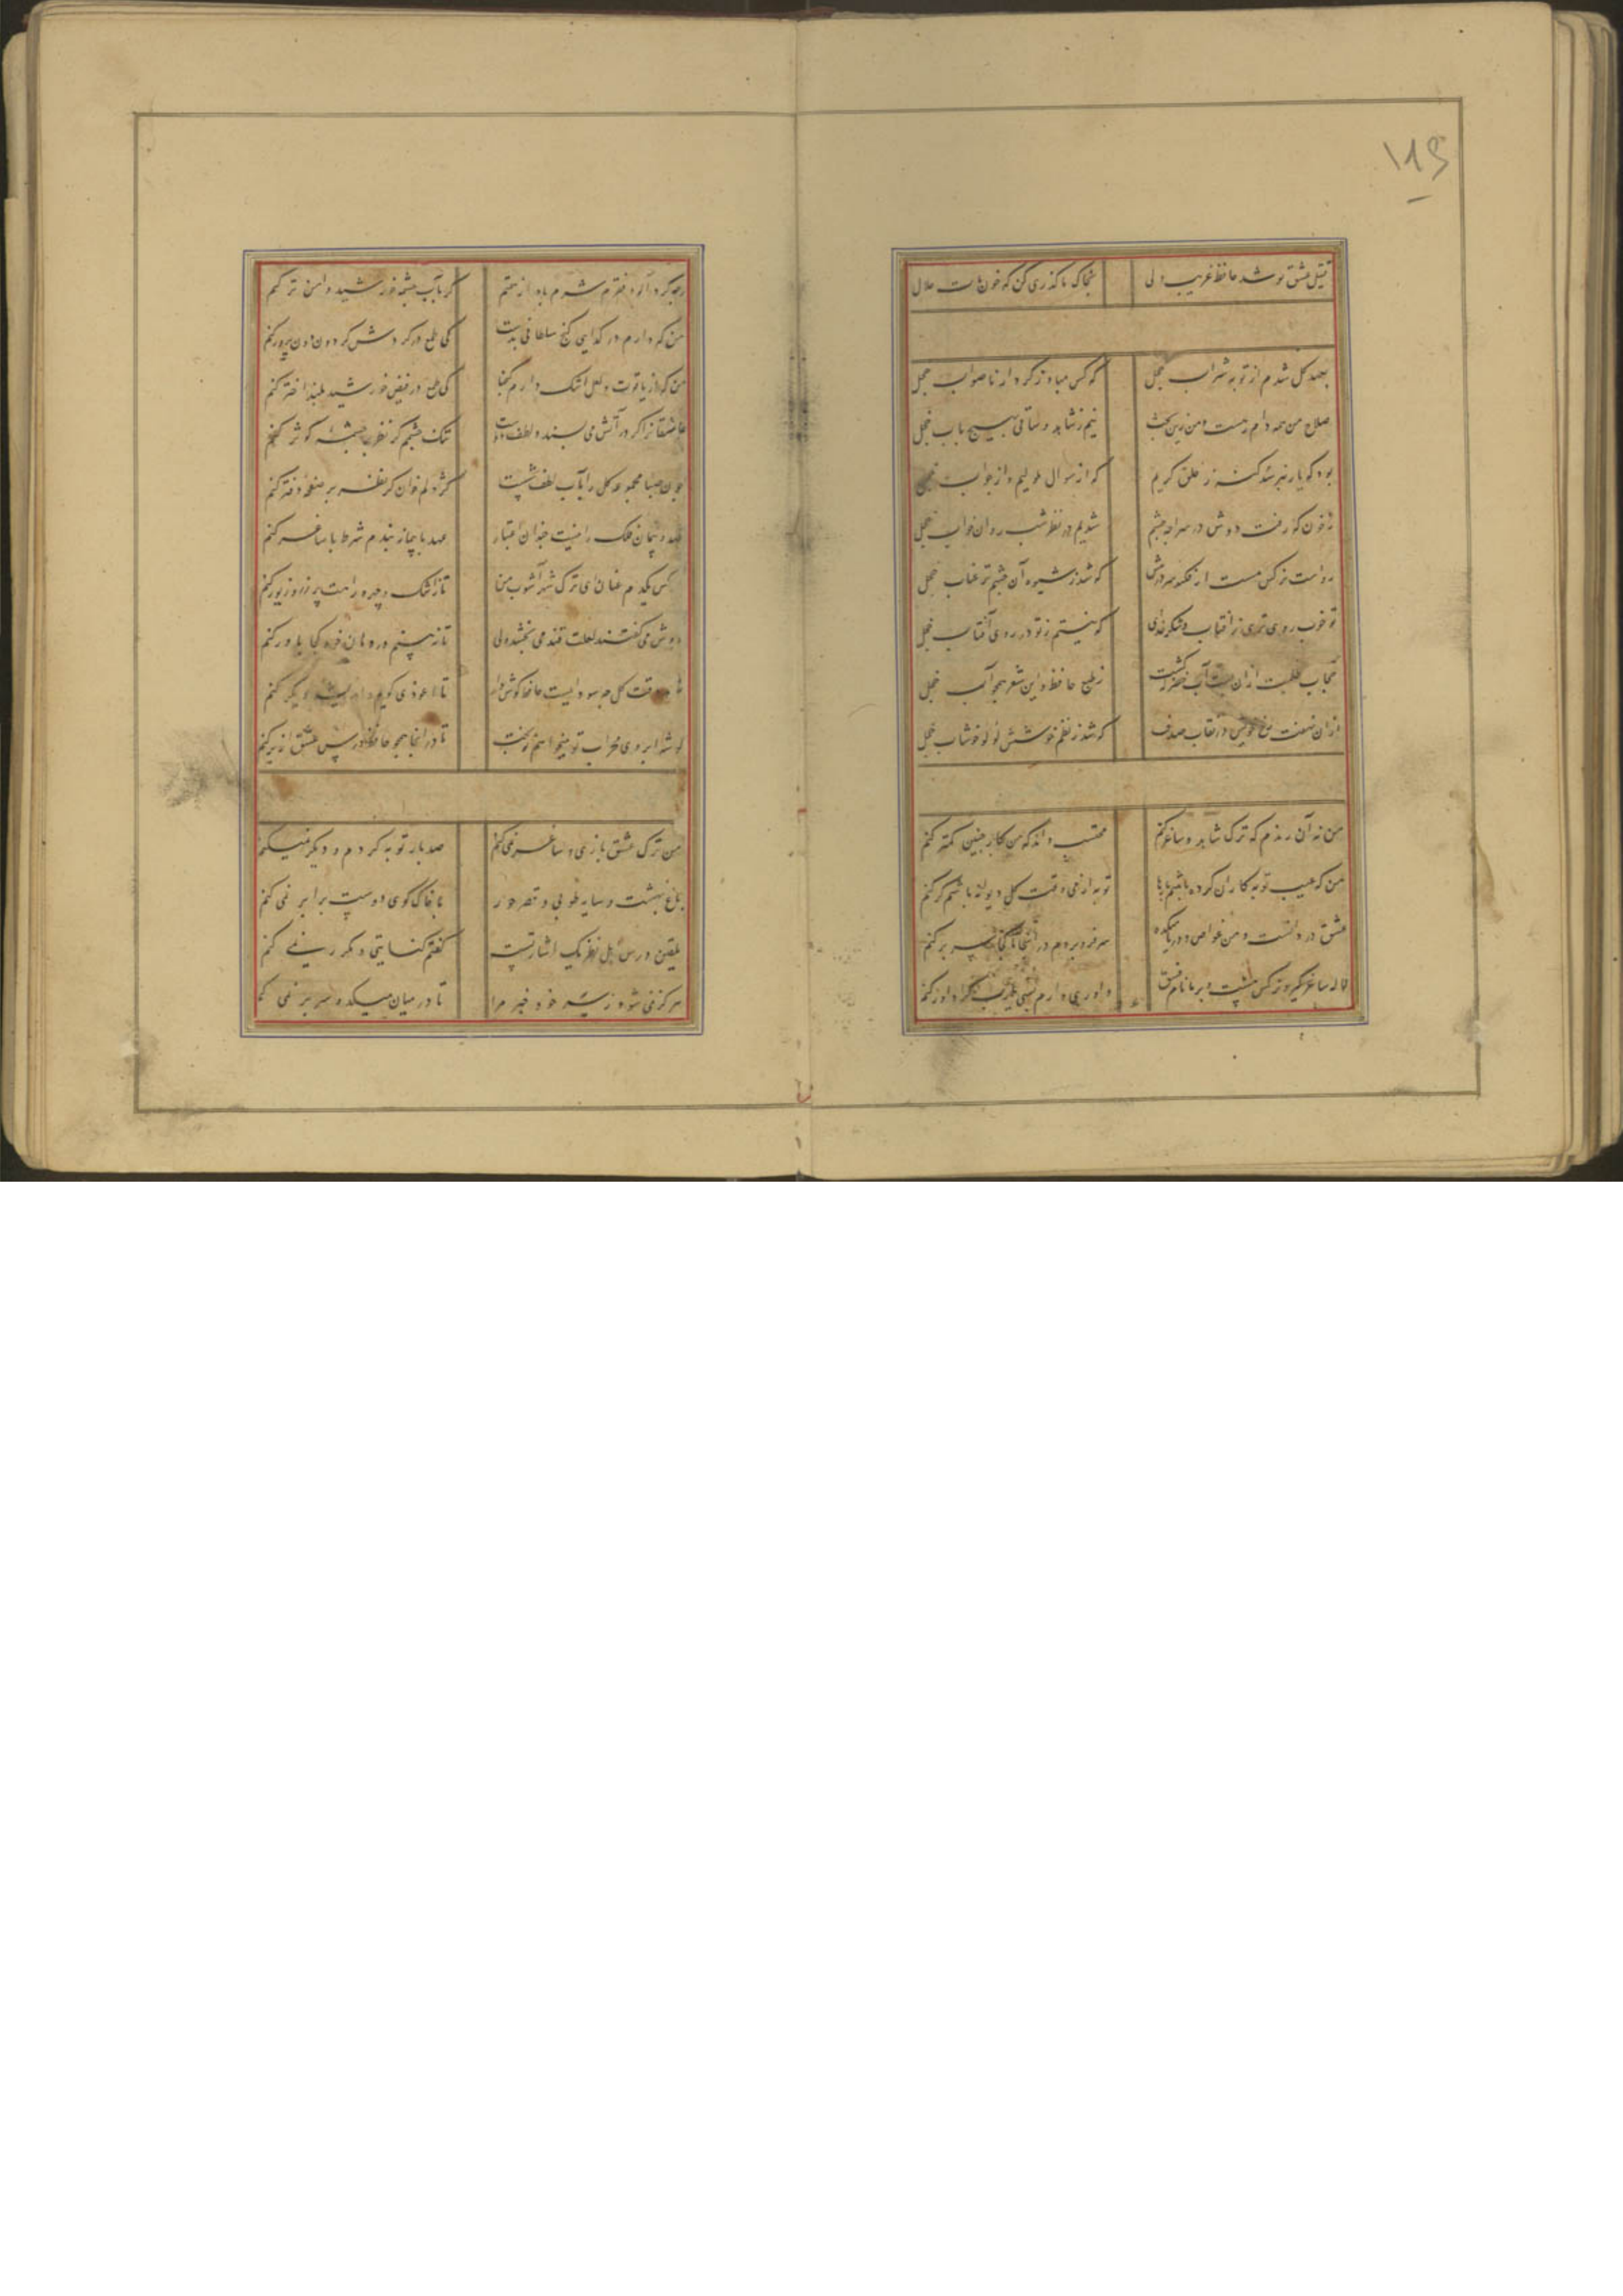 ۱۱۹
قتیل عشق تو شد حافظ غریب ولی بخاک ما گذری کن که خون ماست حلال
بعهد گل شدم از توبه شراب خجل که کس مباد ز کردار ناصواب خجل
صلاح من همه دام رهست و من زین بحث نیم ز شاهد و ساقی بهیچ باب خجل
بود که یار نپرسد گنه ز خلق کریم که از سوال ملولیم و از جواب خجل
ز خون که رفت دوش در سراچه چشم شدیم در نظر شب روان خواب خجل
رواست نرگس مست ار فکند سر در پیش که شد ز شیوه آن چشم پر عتاب خجل
تو خوب روی تری ز آفتاب و شکر خدای که نیستم ز تو در روی آفتاب خجل
حجاب ظلمت از آن بست آب خضر که گشت ز طبع حافظ و این شعر همچو آب خجل
از آن نهفت رخ خویش در نقاب صدف که شد ز نظم خوشش لولو خوشاب خجل
من نه آن رندم که ترک شاهد و ساغر کنم محتسب داند که من کار چنین کمتر کنم
من که عیب توبه کاران کرده باشم بارها توبه از می وقت گل دیوانه باشم گر کنم
عشق دردانست و من غواص و دریا میکده سر فرو بردم در آنجا تا کجا سر بر کنم
لاله ساغر گیر و نرگس مست و بر ما نام فسق داوری دارم بسی یا رب کرا داور کنم
گرچه گرد آلود فقرم شرم باد از همتم گر بآب چشمه خورشید دامن تر کنم
من که دارم در گدایی گنج سلطانی بدست کی طمع در گردش گردون دون پرور کنم
من که از یاقوت و لعل اشک دارم گنجها کی طمع در فیض خورشید بلند اختر کنم
عاشقانرا گر در آتش می پسندد لطف دوست تنگ چشمم گر نظر بر چشمه کوثر کنم
چون صبا مجموعه گل را بآب لطف شست کژ دلم خوان گر نظر بر صفحه دفتر کنم
عهد و پیمان فلک را نیست چندان اعتبار عهد با پیمانه بندم شرط با ساغر کنم
یکدم عنان ای ترک شهر آشوب من تا ز اشک و چهره راهت پر زر و زیور کنم
دوش می گفتند لعلت قند می بخشد ولی تا نه بینم در دهان خود کجا باور کنم
وقت گل چه سوداییست حافظ گوش دار تا اعوذی گویم و اندیشه دیگر کنم
گوشه ابروی محراب تو میخواهم ز بخت تا در آنجا همچو حافظ درس عشق از بر کنم
من ترک عشق بازی و ساغر نمی کنم صد بار توبه کردم و دیگر نمیکنم
باغ بهشت و سایه طوبی و قصر حور با خاک کوی دوست برابر نمی کنم
تلقین درس اهل نظر یک اشارتست گفتم کنایتی و مکرر نمی کنم
هرگز نمی شود ز سر خود خبر مرا تا در میان میکده سر بر نمی کنم